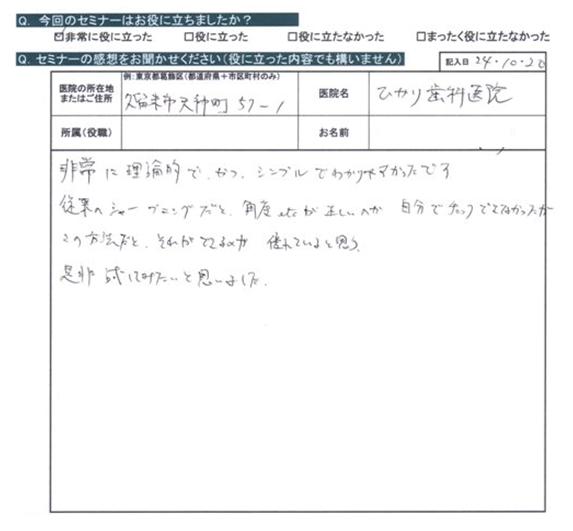 Q. 今回のセミナーはお役に立ちましたか？
☑非常に役に立った □役に立った □役に立たなかった □まったく役に立たなかった
Q. セミナーの感想をお聞かせください(役に立った内容でも構いません) 記入日 24・10・20
例: 東京都葛飾区(都道府県＋市区町村のみ)
医院の所在地またはご住所 久留米市天神町57-1 医院名 ひかり歯科医院
所属(役職) お名前
非常に理論的で、かつ、シンプルでわかりやすかったです
従来のシャープニングだと、角度etcが正しいのか 自分でチェックできなかったが
この方法だと、それができるのが 優れていると思う。
是非 試してみたいと思いました。